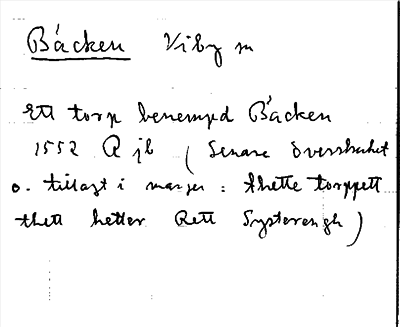 Bäcken Viby sn
Ett torp benempd Bäcken
1552 R jb (Senare överstruket
o. tillagt i margen: thette torppett
thett hetter Rett Systerengh)